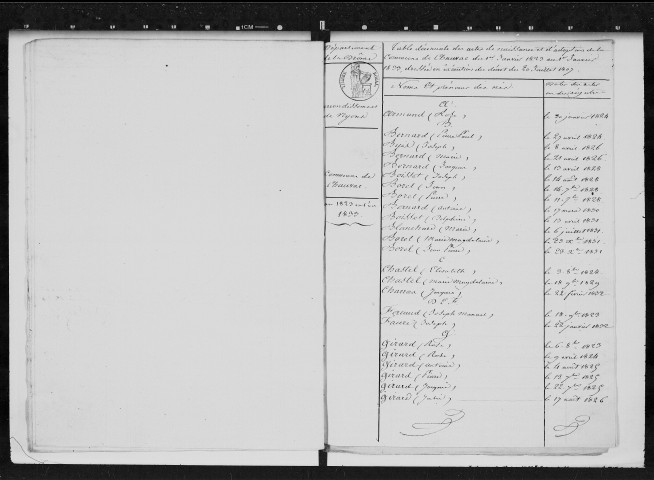 Département
de la Drôme
arrondissement
de Nyons
Commune de
Chauvac
an 1823 au 1er
1833.
Table décennale des actes de naissance et d'adoption de la
Commune de Chauvac du 1er Janvier 1823 au 1er Janvier
1833, dressée en exécution du décret du 20 Juillet 1807.
Noms et prénoms des nés
Dates des actes
A
Armand (Rose) le 30 janvier 1824
B
Bernard (Pierre Paul) le 29 avril 1824
(Joseph) le 8 avril 1826
Bernard (Marie) le 21 avril 1826
Bernard (Jacques) le 13 avril 1828
(Joseph) le 16 août 1828
Borel (Jean) le 16 7bre 1828
Borel (Pierre) le 11 7bre 1828
Bernard (Antoine) le 17 mars 1830
(Delphine) le 13 avril 1831
(Marie) le 6 juillet 1831
Borel (Marie Magdelaine) le 23 Xbre 1831
Borel (Jean Pierre) le 23 Xbre 1831
C
Chastel (Elisabeth) le 3 8bre 1828
Chastel (Marie Magdelaine) le 18 9bre 1829
(Jacques) le 22 février 1832
D E F
(Joseph Marius) le 18 9bre 1823
Faure (Joseph) le 22 janvier 1832
G
Girard (Rose) le 6 8bre 1823
Girard (Rose) le 9 avril 1824
Girard (Antoine) le 4 août 1825
Girard (Pierre) le 13 7bre 1825
Girard (Jacques) le 22 7bre 1825
Girard (Julie) le 17 août 1826